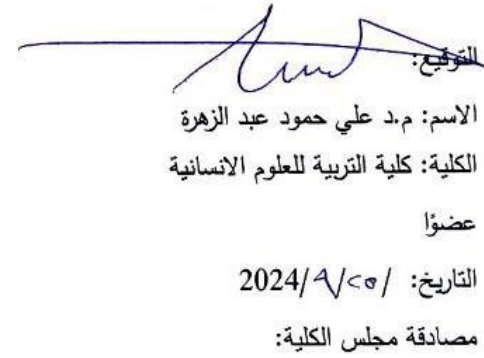 التوقيع:
الاسم: م.د علي حمود عبد الزهرة
الكلية: كلية التربية للعلوم الانسانية
عضوًا
التاريخ: /٢٥/٩/2024
مصادقة مجلس الكلية: